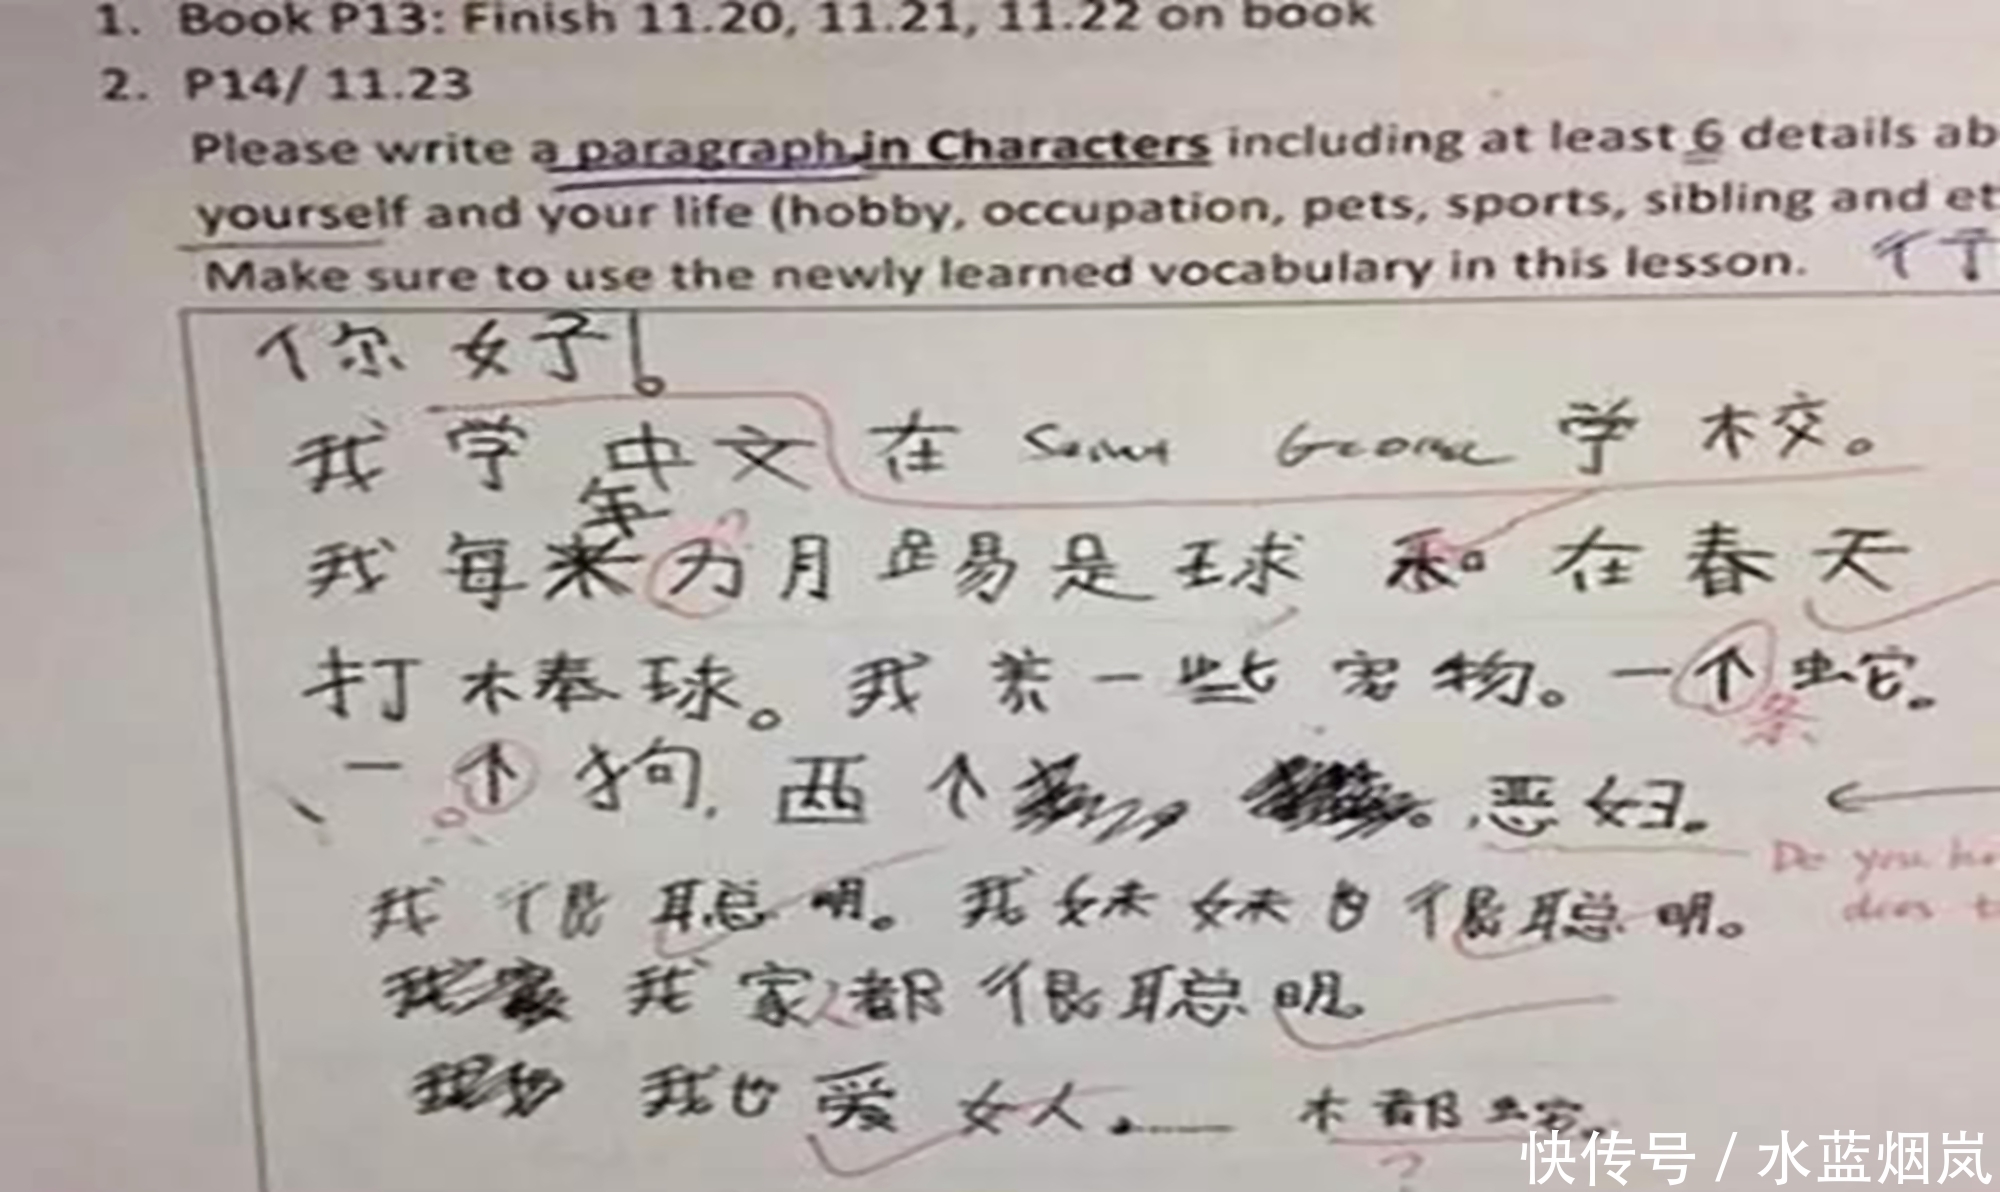 1. Book P13: Finish 11.20, 11.21, 11.22 on book
2. P14/ 11.23
Please write a paragraph in Characters including at least 6 details ab
yourself and your life (hobby, occupation, pets, sports, sibling and et
Make sure to use the newly learned vocabulary in this lesson.
你好!
我学中文在 Saint George 学校。
年
我每为月踢足球。在春天
打棒球。我养一些宠物。一个蛇。
条
一个狗, 两个。恶妇。
只
Do you ha
does t
我很聪明。我妹妹也很聪明。
我家人都很聪明。
我也爱女人。 都蛇。
?
快传号 / 水蓝烟岚